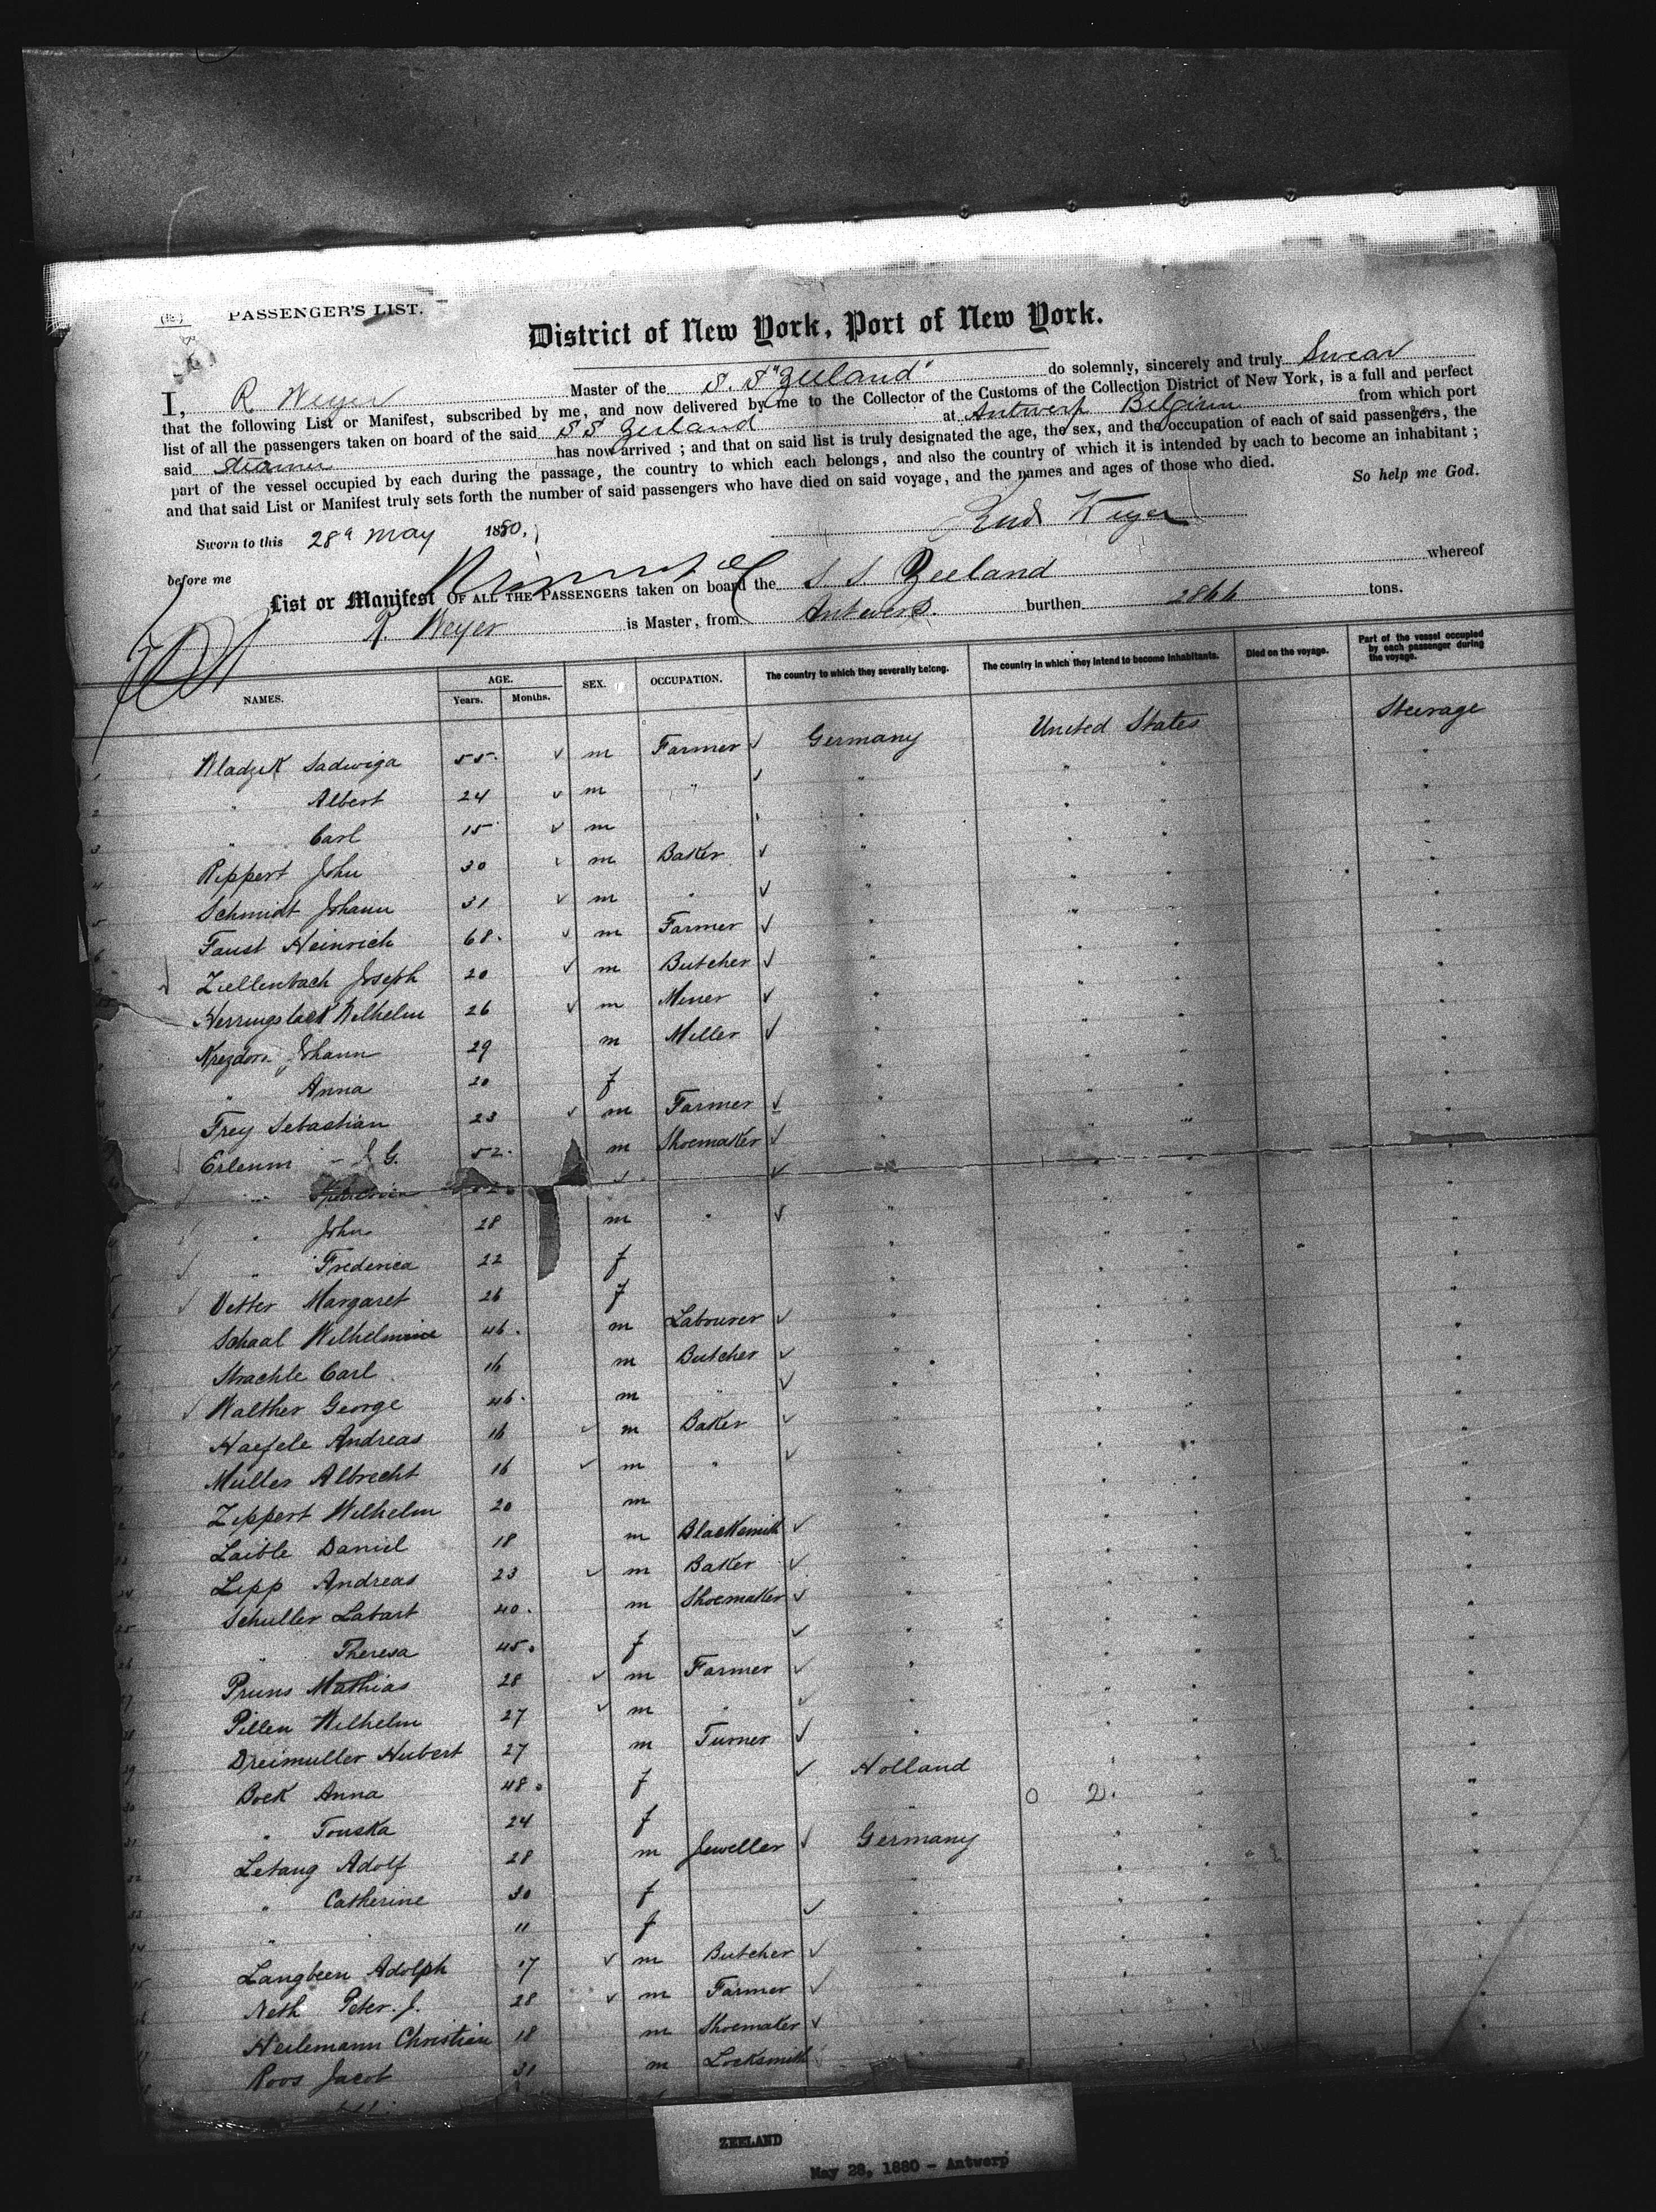 PASSENGER'S LIST.
District of New York, Port of New York.
I, R Weyer Master of the S. S "Zeeland" do solemnly, sincerely and truly Swear
that the following List or Manifest, subscribed by me, and now delivered by me to the Collector of the Customs of the Collection District of New York, is a full and perfect
list of all the passengers taken on board of the said S S Zeeland at Antwerp Belgium from which port
said Steamer has now arrived ; and that on said list is truly designated the age, the sex, and the occupation of each of said passengers, the
part of the vessel occupied by each during the passage, the country to which each belongs, and also the country of which it is intended by each to become an inhabitant ;
and that said List or Manifest truly sets forth the number of said passengers who have died on said voyage, and the names and ages of those who died.
So help me God.
Sworn to this 28 May 1880, Rud Weyer
before me
List or Manifest OF ALL THE PASSENGERS taken on board the S S Zeeland whereof
R. Weyer is Master, from Antwerp burthen 2866 tons.
NAMES. AGE. Years. Months. SEX. OCCUPATION. The country to which they severally belong. The country in which they intend to become inhabitants. Died on the voyage. Part of the vessel occupied by each passenger during the voyage.
1 Wladzik Sadwiga 55 m Farmer Germany United States Steerage
2 " Albert 24 m " " " " "
3 " Carl 15 m " " " "
4 Rippert John 30 m Baker " " " "
5 Schmidt Johann 31 m " " " " "
6 Faust Heinrich 68 m Farmer " " " "
Ziellenbach Joseph 20 m Butcher " " " "
Wilhelm 26 m Miner " " " "
Johann 29 m Miller " " " "
" Anna 20 f " " " "
Frey Sebastian 23 m Farmer " " " "
J G. 52 m Shoemaker " " " "
" John 28 m " " " " "
" Frederica 22 f " " " "
Vetter Margaret 26 f " " " "
Schaal Wilhelmine 46 m Labourer " " " "
Strachle Carl 16 m Butcher " " " "
Walther George 46 m " " " " "
Haefele Andreas 16 m Baker " " " "
Muller Albrecht 16 m " " " " "
Zeppert Wilhelm 20 m " " " "
Laible Daniel 18 m Blacksmith " " " "
24 Lipp Andreas 23 m Baker " " " "
25 Schuller Labart 40 m Shoemaker " " " "
26 " Theresa 45 f " " " "
27 Pruns Mathias 28 m Farmer " " " "
Pillen Wilhelm 27 m " " " " "
29 Dreimuller Hubert 27 m Turner " " " "
30 Bock Anna 48 f Holland " " "
31 " Touska 24 f " " "
32 Letang Adolf 28 m Jeweller Germany " " "
33 " Catherine 30 f " " " "
" 11 f " " " "
Langbeen Adolph 17 m Butcher " " " "
Neth Peter. J. 28 m Farmer " " " "
Heilemann Christian 18 m Shoemaker " " " "
Roos Jacob 31 m Locksmith " " " "
ZEELAND
May 28, 1880 - Antwerp